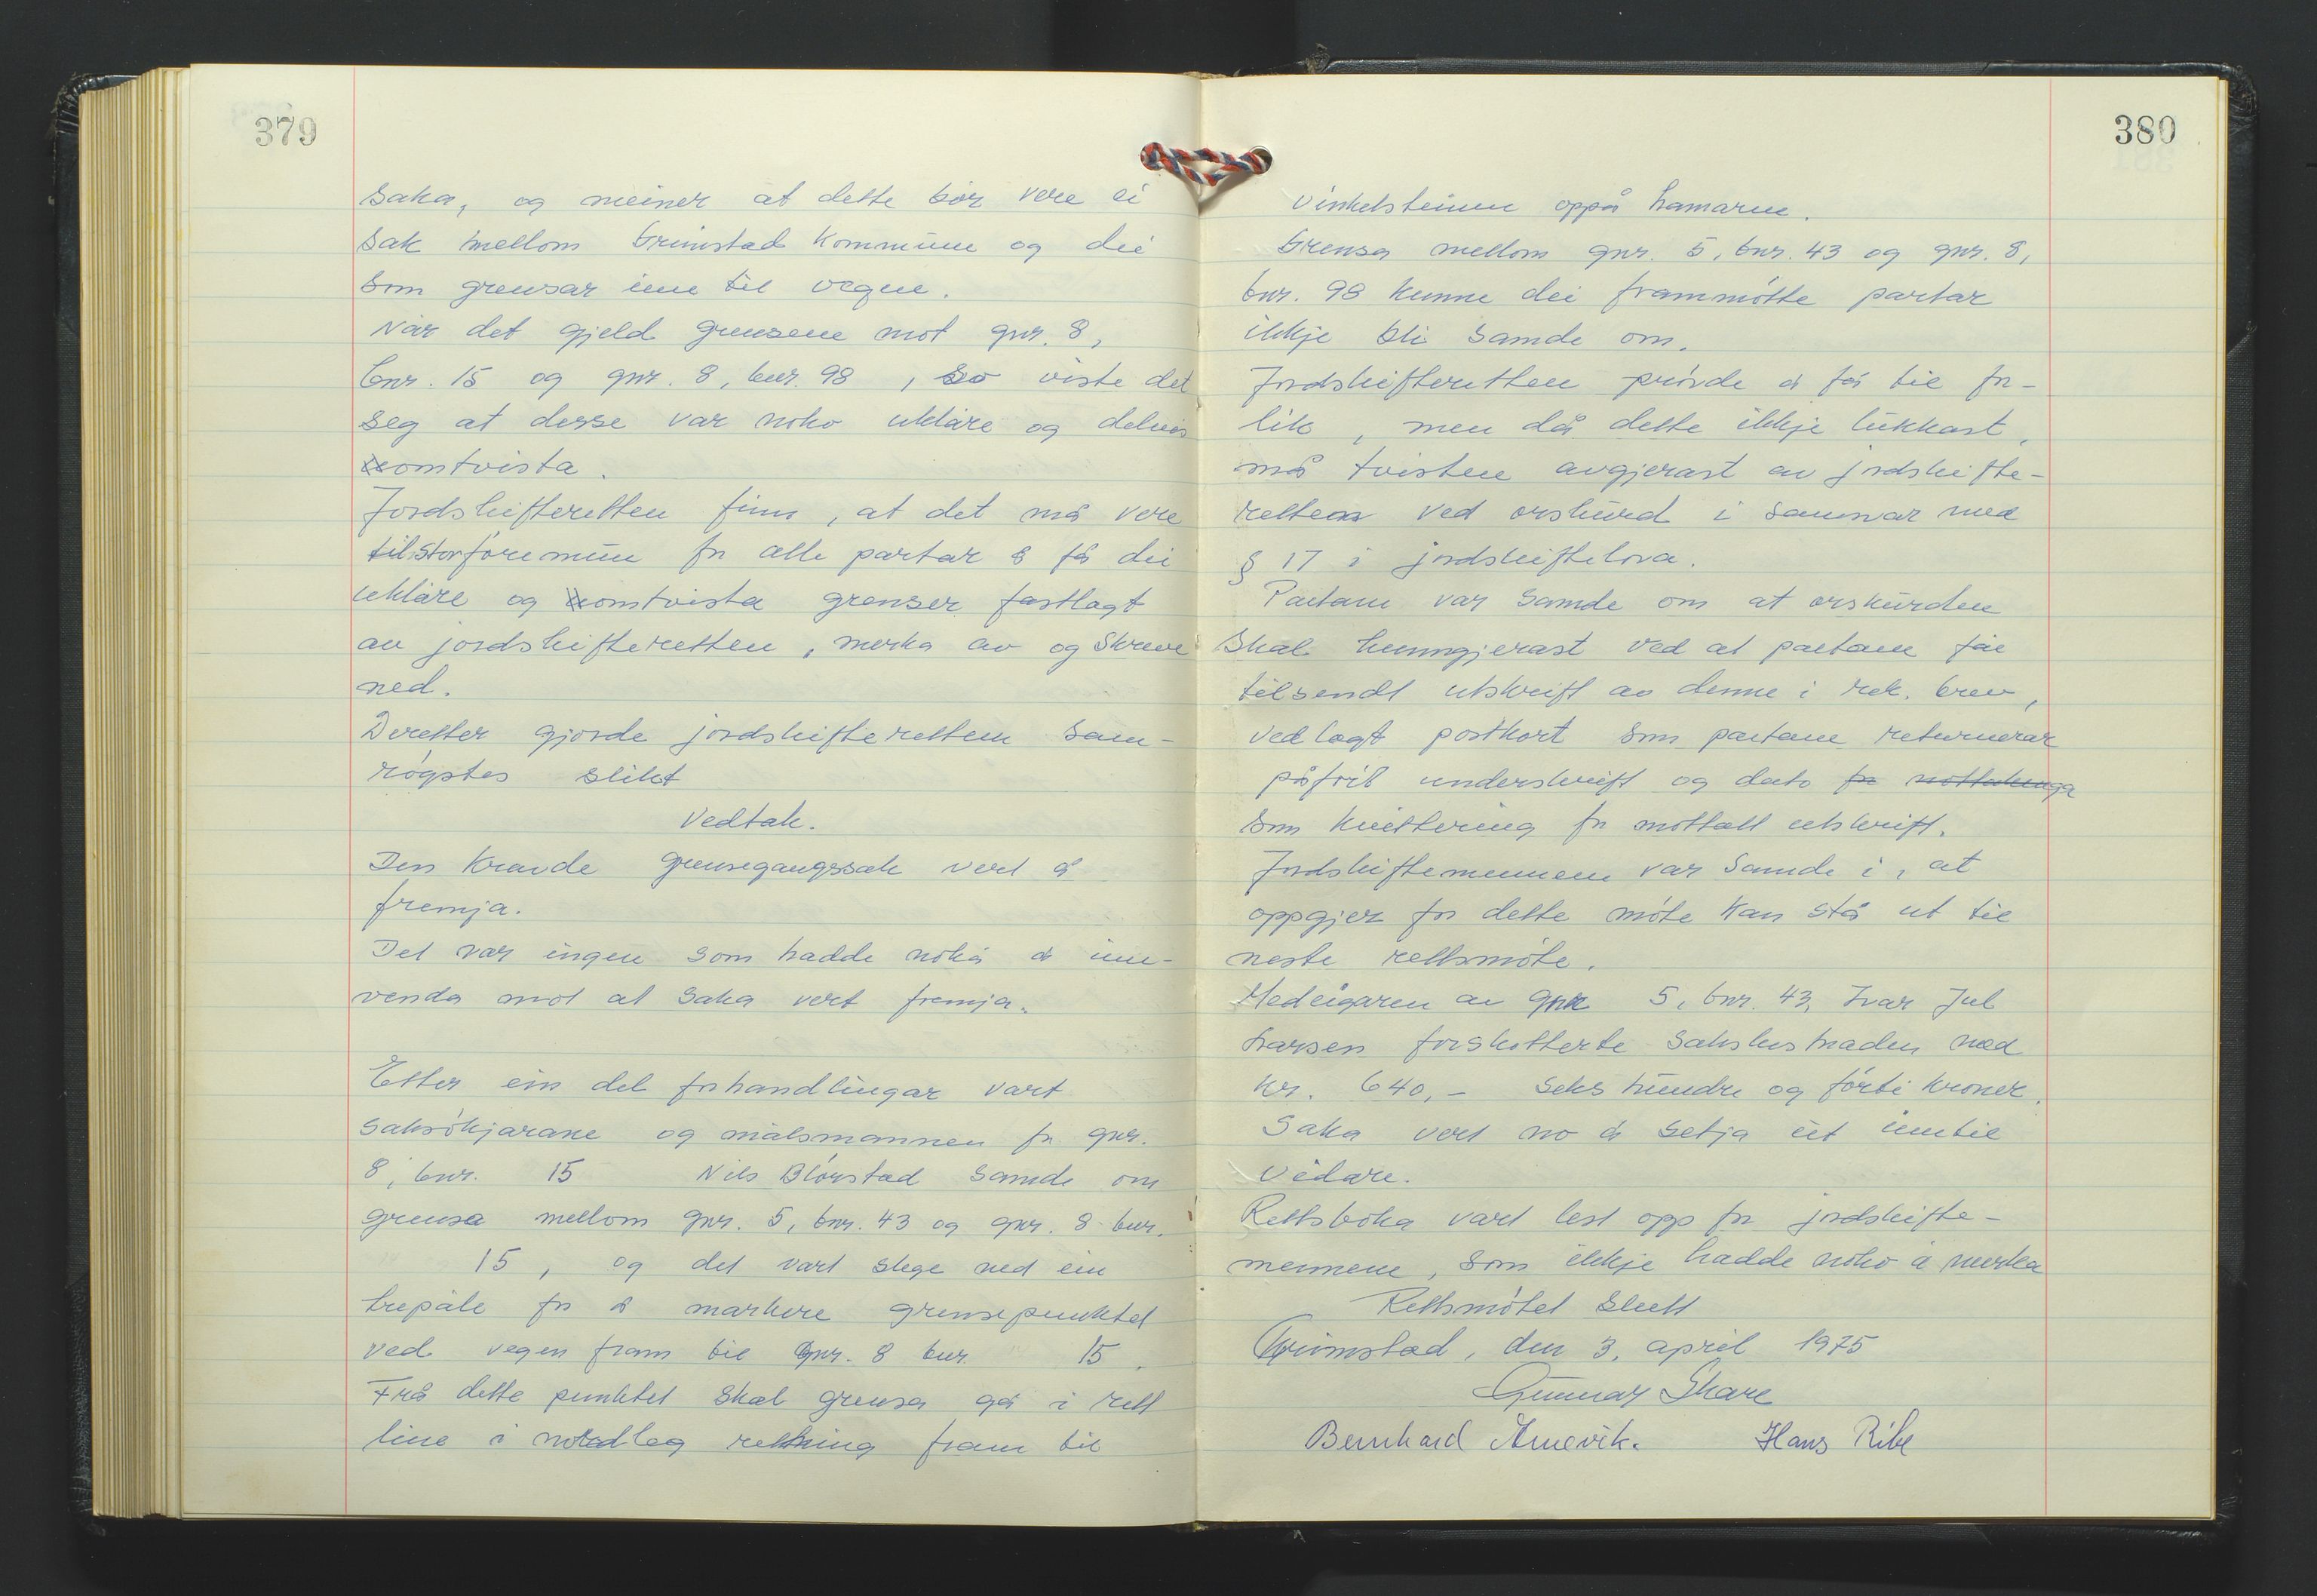 379
saka, og meiner at dette bør vere ei
sak mellom Grimstad kommune og dei
som grensar inn til vegen.
Når det gjeld grensene mot gnr. 8,
bnr. 15 og gnr. 8, bnr. 98, so viste det
seg at desse var noko uklåre og delvis
omtvista.
Jordskifteretten finn, at det må vere
til stor føremun for alle partar å få dei
uklåre og omtvista grenser fastlagt
av jordskifteretten, merka av og skreve
ned.
Deretter gjorde jordskifteretten sam-
røystes slikt
Vedtak.
Den kravde grensegangssak vert å
fremja.
Det var ingen som hadde noko å inn-
venda mot at saka vert fremja.
Etter ein del forhandlingar vart
saksøkjarane og målsmannen for gnr.
8, bnr. 15 Nils Blørstad samde om
grensa mellom gnr. 5, bnr. 43 og gnr. 8 bnr.
15, og det vart slege ned ein
trepåle for å markere grensepunktet
ved vegen fram til gnr. 8 bnr. 15.
Frå dette punktet skal grensa gå i rett
line i nordleg retning fram til
380
vinkelsteinen oppå hamaren.
Grensa mellom gnr. 5, bnr. 43 og gnr. 8,
bnr. 98 kunne dei frammøtte partar
ikkje bli samde om.
Jordskifteretten prøvde å få til for-
lik, men då dette ikkje lukkast,
må tvisten avgjerast av jordskifte-
retten ved orskurd i samsvar med
§ 17 i jordskiftelova.
Partane var samde om at orskurden
skal kunngjerast ved at partane får
tilsendt utskrift av denne i rek. brev,
vedlagt postkort som partane returnerar
påført underskrift og dato for mottakinga
som kvittering for mottatt utskrift.
Jordskiftemennene var samde i, at
oppgjer for dette møte kan stå ut til
neste rettsmøte.
Medeigaren av gnr 5, bnr. 43, Ivar Jul
Larsen forskotterte sakskostnaden med
kr. 640,- seks hundre og førti kroner.
Saka vert no å setja ut inntil
vidare.
Rettsboka vart lest opp for jordskifte-
mennene, som ikkje hadde noko å merka
Rettsmøtet slutt
Grimstad, den 3. april 1975
Gunnar Skare
Bernhard Arnevik. Hans Ribe